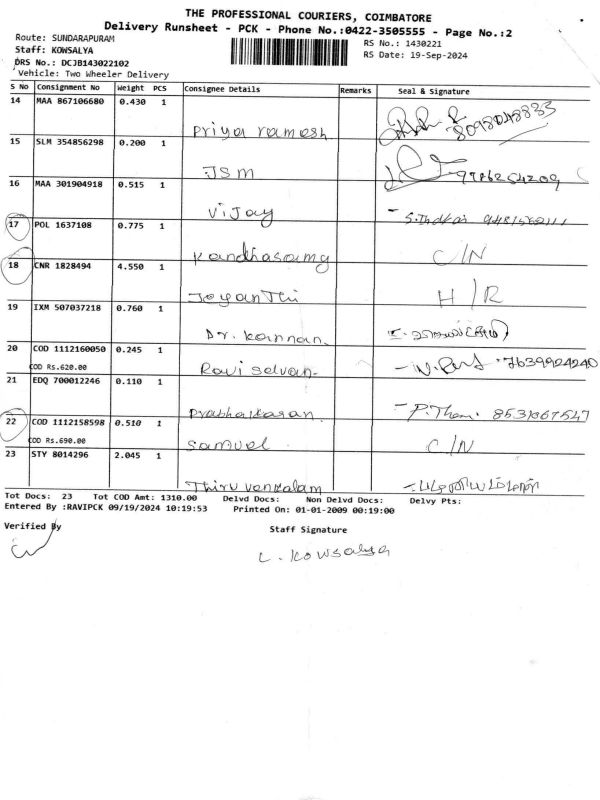 THE PROFESSIONAL COURIERS, COIMBATORE
Delivery Runsheet - PCK - Phone No.:0422-3505555 - Page No.:2
Route: SUNDARAPURAM
RS No.: 1430221
Staff: KOWSALYA
RS Date: 19-Sep-2024
DRS No.: DCJB143022102
Vehicle: Two Wheeler Delivery
S No Consignment No Weight PCS Consignee Details Remarks Seal & Signature
14 MAA 867106680 0.430 1
Priya ramesh
15 SLM 354856298 0.200 1
JSM
16 MAA 301904918 0.515 1
Vijay
17 POL 1637108 0.775 1
Kandhasamy C/N
18 CNR 1828494 4.550 1
Joyanthi H/R
19 IXM 507037218 0.760 1
Dr. Kannan.
20 COD 1112160050 0.245 1
COD Rs.620.00
Ravi selvan. 7639924240
21 EDQ 700012246 0.110 1
Prabhakaran
22 COD 1112158598 0.510 1
COD Rs.690.00
Samuel C/N
23 STY 8014296 2.045 1
Thiru venkalam
Tot Docs: 23 Tot COD Amt: 1310.00 Delvd Docs: Non Delvd Docs: Delvy Pts:
Entered By :RAVIPCK 09/19/2024 10:19:53 Printed On: 01-01-2009 00:19:00
Verified By
Staff Signature
L. Kowsalya